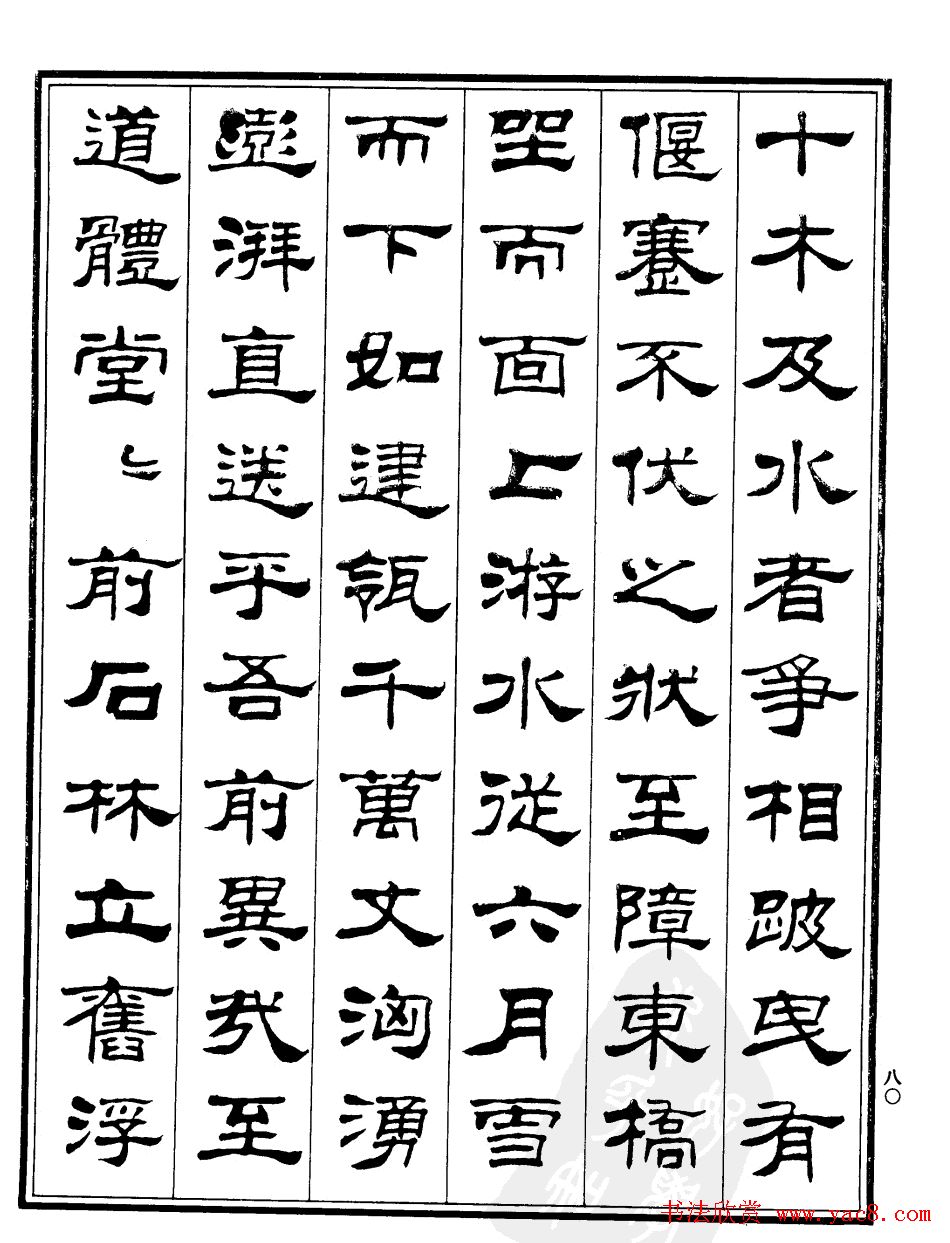 十木及水者爭相跛曳有
偃蹇不伏之狀至障東橋
坐而面上游水從六月雪
而下如建瓴千萬丈洶湧
澎湃直送乎吾前異哉至
道體堂〻前石林立舊浮
八〇
书法欣赏 www.yac8.com